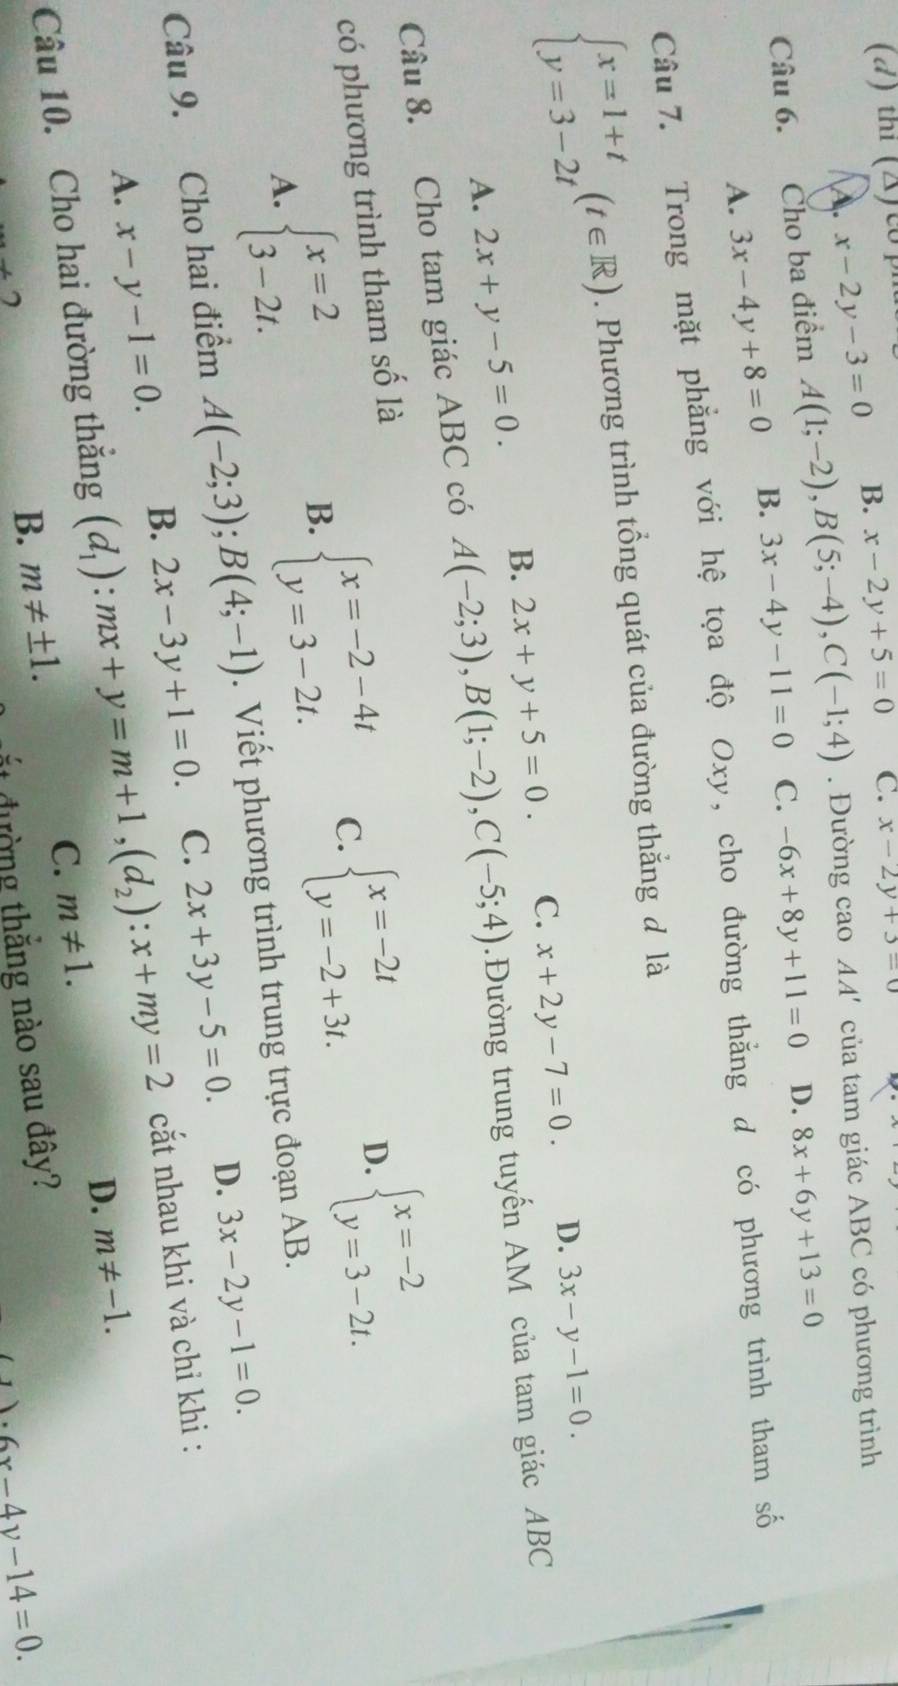 (d) thì (Δ) có
A. x − 2y − 3 = 0 B. x − 2y + 5 = 0 C. x − 2y + 3 = 0
Câu 6. Cho ba điểm A(1;−2), B(5;−4), C(−1;4) . Đường cao AA′ của tam giác ABC có phương trình
A. 3x − 4y + 8 = 0 B. 3x − 4y − 11 = 0 C. −6x + 8y + 11 = 0 D. 8x + 6y + 13 = 0
Câu 7. Trong mặt phẳng với hệ tọa độ Oxy , cho đường thẳng d có phương trình tham số
{x = 1 + t
{y = 3 − 2t (t ∈ ℝ). Phương trình tổng quát của đường thẳng d là
A. 2x + y − 5 = 0 . B. 2x + y + 5 = 0 . C. x + 2y − 7 = 0 . D. 3x − y − 1 = 0 .
Câu 8. Cho tam giác ABC có A(−2;3), B(1;−2), C(−5;4).Đường trung tuyến AM của tam giác ABC
có phương trình tham số là
A. {x = 2 B. {x = −2 − 4t C. {x = −2t D. {x = −2
{3 − 2t. {y = 3 − 2t. {y = −2 + 3t. {y = 3 − 2t.
Câu 9. Cho hai điểm A(−2;3); B(4;−1). Viết phương trình trung trực đoạn AB.
A. x − y − 1 = 0. B. 2x − 3y + 1 = 0. C. 2x + 3y − 5 = 0. D. 3x − 2y − 1 = 0.
Câu 10. Cho hai đường thẳng (d₁): mx + y = m + 1 , (d₂): x + my = 2 cắt nhau khi và chỉ khi :
m ≠ 2 B. m ≠ ±1. C. m ≠ 1. D. m ≠ −1.
đường thẳng nào sau đây?
6x − 4y − 14 = 0.